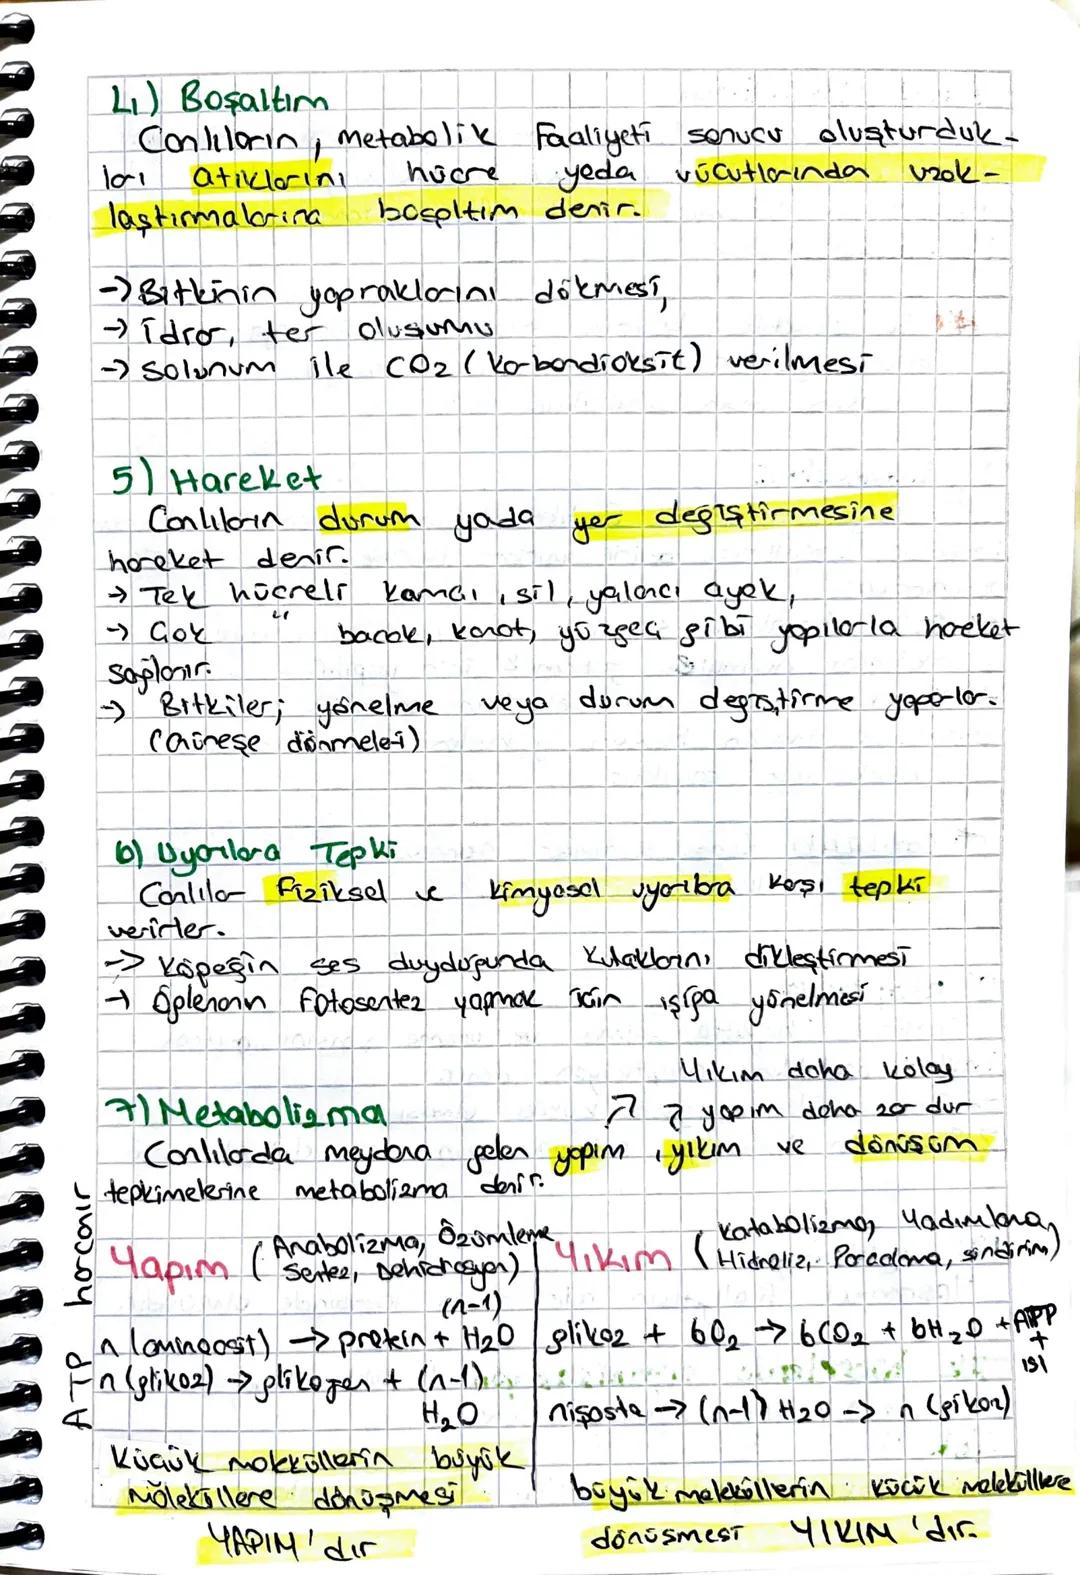 4) Boşaltım
Canlıların, metabolik faaliyeti sonucu oluşturduk-
ları atıklarını hücre yada vücutlarından uzak-
laştırmalarına boşaltım denir.
-> Bitkinin yapraklarını dökmesi,
-> İdrar, ter oluşumu
-> Solunum ile CO2 (karbondioksit) verilmesi
5) Hareket
Canlıların durum yada yer değiştirmesine
hareket denir.
-> Tek hücreli kamçı, sil, yalancı ayak,
-> Çok " bacak, kanat, yüzgeç gibi yapılarla hareket
sağlanır.
-> Bitkiler; yönelme veya durum değiştirme yaparlar.
(Güneşe dönmeleri)
6) Uyarılara Tepki
Canlılar fiziksel ve kimyasal uyarılara karşı tepki
verirler.
-> Köpeğin ses duyduğunda kulaklarını dikleştirmesi
-> Öglenanın fotosentez yapmak için ışığa yönelmesi
Yıkım daha kolay
7) Metabolizma ↗ ↗ yapım daha zor dur
Canlılarda meydana gelen yapım, yıkım ve dönüşüm
tepkimelerine metabolizma denir.
ATP harcanır
Yapım (Anabolizma, Özümleme
Sentez, Dehidrasyon)
(n-1)
n (aminoasit) -> protein + H2O
n (glikoz) -> glikojen + (n-1)
H2O
Küçük moleküllerin büyük
moleküllere dönüşmesi
YAPIM'dır
Yıkım (Katabolizma, Yadımlama,
Hidroliz, Parçalama, sindirim)
glikoz + 6O2 -> 6CO2 + 6H2O + ATP
+
ısı
nişasta -> (n-1) H2O -> n (glikoz)
büyük moleküllerin küçük moleküllere
dönüşmesi YIKIM'dır.